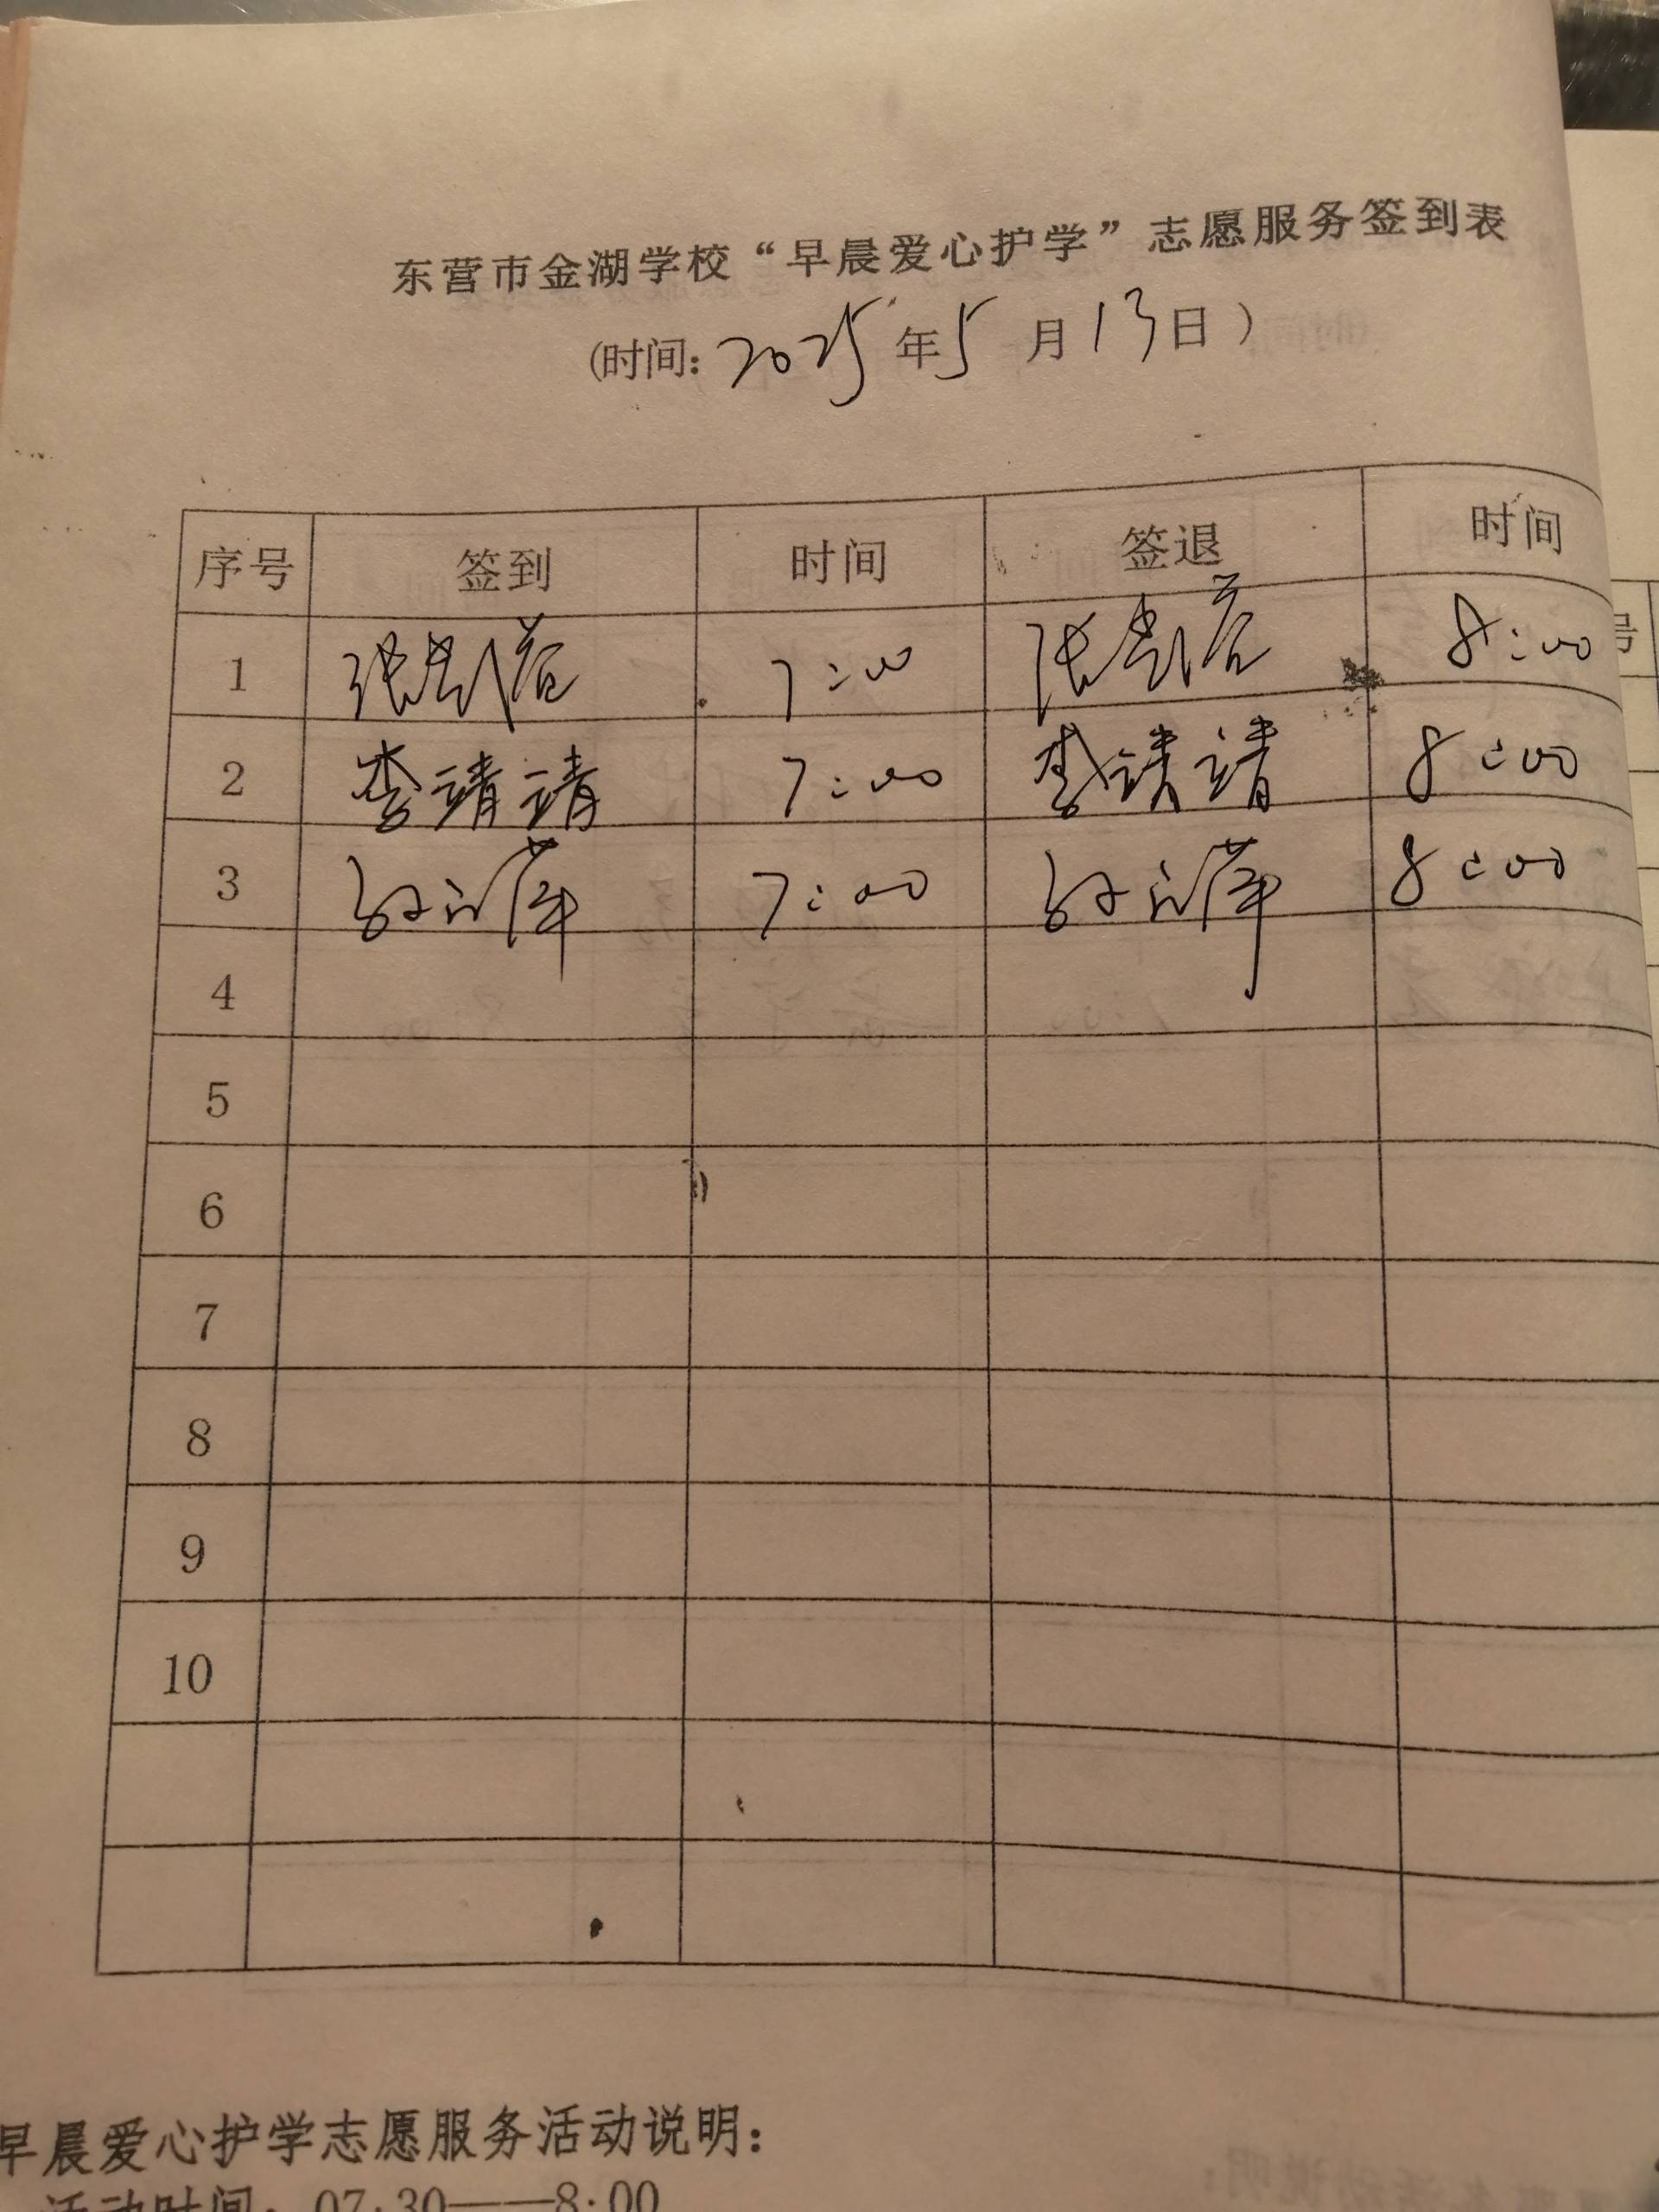 东营市金湖学校“早晨爱心护学”志愿服务签到表
(时间: 2025年5月13日)
序号 签到 时间 签退 时间
1 7:00 8:00
2 李靖靖 7:00 李靖靖 8:00
3 7:00 8:00
4
5
6
7
8
9
10
号
早晨爱心护学志愿服务活动说明:
活动时间: 07:30——8:00